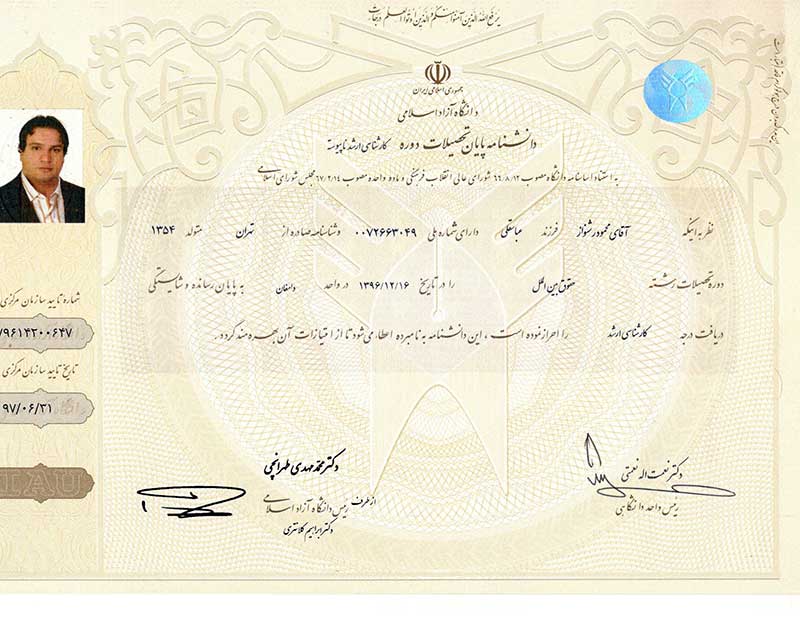 یرفع الله الذین آمنوا منکم و الذین اوتوا العلم درجات
جمهوری اسلامی ایران
دانشگاه آزاد اسلامی
دانشنامه پایان تحصیلات دوره کارشناسی ارشد ناپیوسته
به استناد اساسنامه دانشگاه مصوب ۶۶/۸/۱۲ شورای عالی انقلاب فرهنگی و ماده واحده مصوب ۶۷/۲/۱۴ مجلس شورای اسلامی
نظر به اینکه آقای محمود رشنواز فرزند عباسقلی دارای شماره ملی ۰۰۷۲۶۶۳۰۴۹ و شناسنامه صادره از تهران متولد ۱۳۵۴
دوره تحصیلات رشته حقوق بین الملل را در تاریخ ۱۳۹۶/۱۲/۱۶ در واحد دامغان به پایان رسانده و شایستگی
دریافت درجه کارشناسی ارشد را احراز نموده است ، این دانشنامه به نامبرده اعطاء می شود تا از امتیازات آن بهره مند گردد.
شماره تایید سازمان مرکزی
۷۹۶۱۴۲۰۰۶۴۷
تاریخ تایید سازمان مرکزی
۹۷/۰۶/۳۱
IAU
دکتر نعمت اله نعمتی
رئیس واحد دانشگاهی
دکتر محمد مهدی طهرانچی
از طرف رئیس دانشگاه آزاد اسلامی
دکتر ابراهیم کلانتری